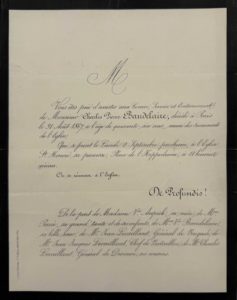 M
Vous êtes prié d'assister aux Convoi, Service et Enterrement
de Monsieur Charles Pierre Baudelaire, décédé à Paris
le 31 Août 1867 à l'âge de quarante-six ans, muni des sacrements
de l'Eglise;
Qui se feront le Lundi 2 Septembre prochain, à l'Eglise
St Honoré, sa paroisse, Place de l'Hippodrome, à 11 heures
On se réunira à l'Eglise.
De Profundis!
De la part de Madame Vve Aupick, sa mère, de Mme
sa belle sœur, de Mr Jean Levaillant, Général de Brigade, de
Mr Jean Jacques Levaillant, Chef de Bataillon, de Mr Charles
Levaillant, Général de Division, ses cousins.